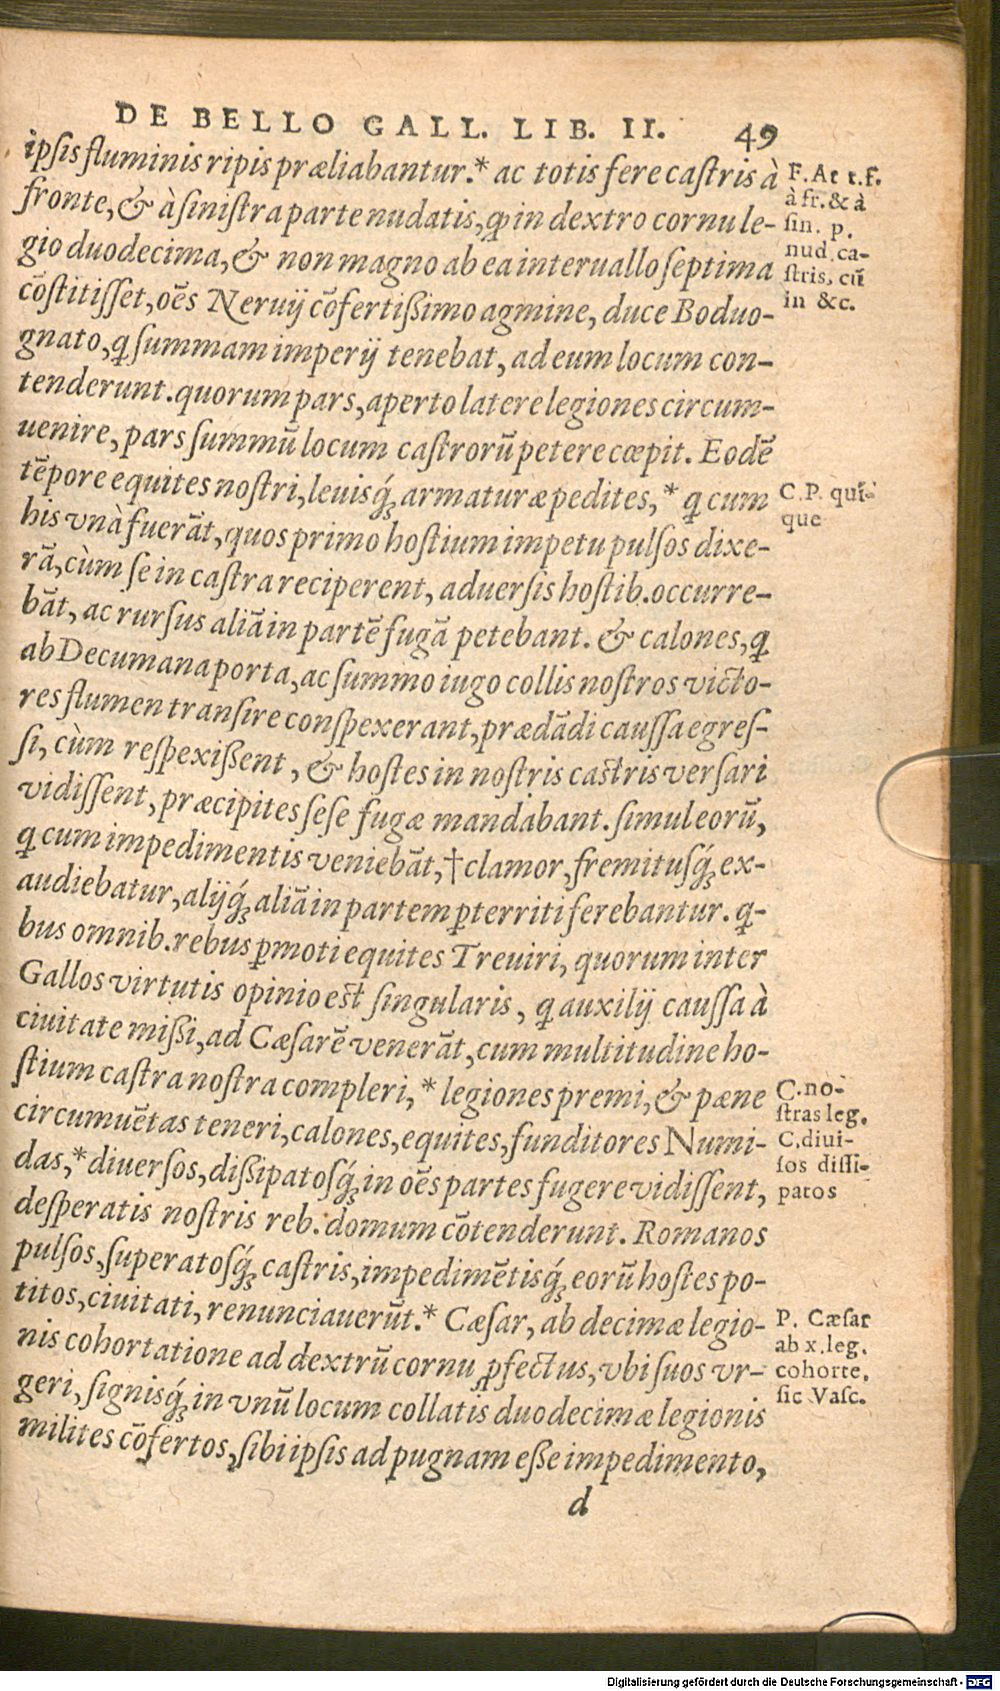 DE BELLO GALL. LIB. II. 49
ipsis fluminis ripis præliabantur.* ac totis fere castris à
fronte, & à sinistra parte nudatis, qͥ in dextro cornu le-
gio duodecima, & non magno ab ea interuallo septima
cõstitisset, oẽs Neruij cõfertißimo agmine, duce Boduo-
gnato, qͥ summam imperij tenebat, ad eum locum con-
tenderunt. quorum pars, aperto latere legiones circum-
uenire, pars summũ locum castrorũ petere cœpit. Eodẽ
tẽpore equites nostri, leuisq́; armaturæ pedites, * qͥ cum
his vnà fuerãt, quos primo hostium impetu pulsos dixe-
rã, cùm se in castra reciperent, aduersis hostib. occurre-
bãt, ac rursus aliã in partẽ fugã petebant. & calones, qͥ
ab Decumana porta, ac summo iugo collis nostros victo-
res flumen transire conspexerant, prædãdi caussa egres-
si, cùm respexißent, & hostes in nostris castris versari
vidissent, præcipites sese fugæ mandabant. simul eorũ,
qͥ cum impedimentis veniebãt, † clamor, fremitusq́; ex-
audiebatur, alijq́; aliã in partem ꝑterriti ferebantur. qͥ-
bus omnib. rebus ꝑmoti equites Treuiri, quorum inter
Gallos virtutis opinio est singularis, qͥ auxilij caussa à
ciuitate mißi, ad Cæsarẽ venerãt, cum multitudine ho-
stium castra nostra compleri, * legiones premi, & pæne
circumuẽtas teneri, calones, equites, funditores Numi-
das, * diuersos, dißipatosq́; in oẽs partes fugere vidissent,
desperatis nostris reb. domum cõtenderunt. Romanos
pulsos, superatosq́; castris, impedimẽtisq́; eorũ hostes po-
titos, ciuitati, renunciauerũt.* Cæsar, ab decimæ legio-
nis cohortatione ad dextrũ cornu ꝓfectus, vbi suos vr-
geri, signisq́; in vnũ locum collatis duodecimæ legionis
milites cõfertos, sibi ipsis ad pugnam eße impedimento,
d
F. At t. f.
à fr. & à
sin. p.
nud. ca-
stris, cũ
in &c.
C. P. quĩ-
que
C. no-
stras leg.
C. diui-
sos dissi-
patos
P. Cæsar
ab x. leg.
cohorte.
sic Vasc.
Digitalisierung gefördert durch die Deutsche Forschungsgemeinschaft - DFG